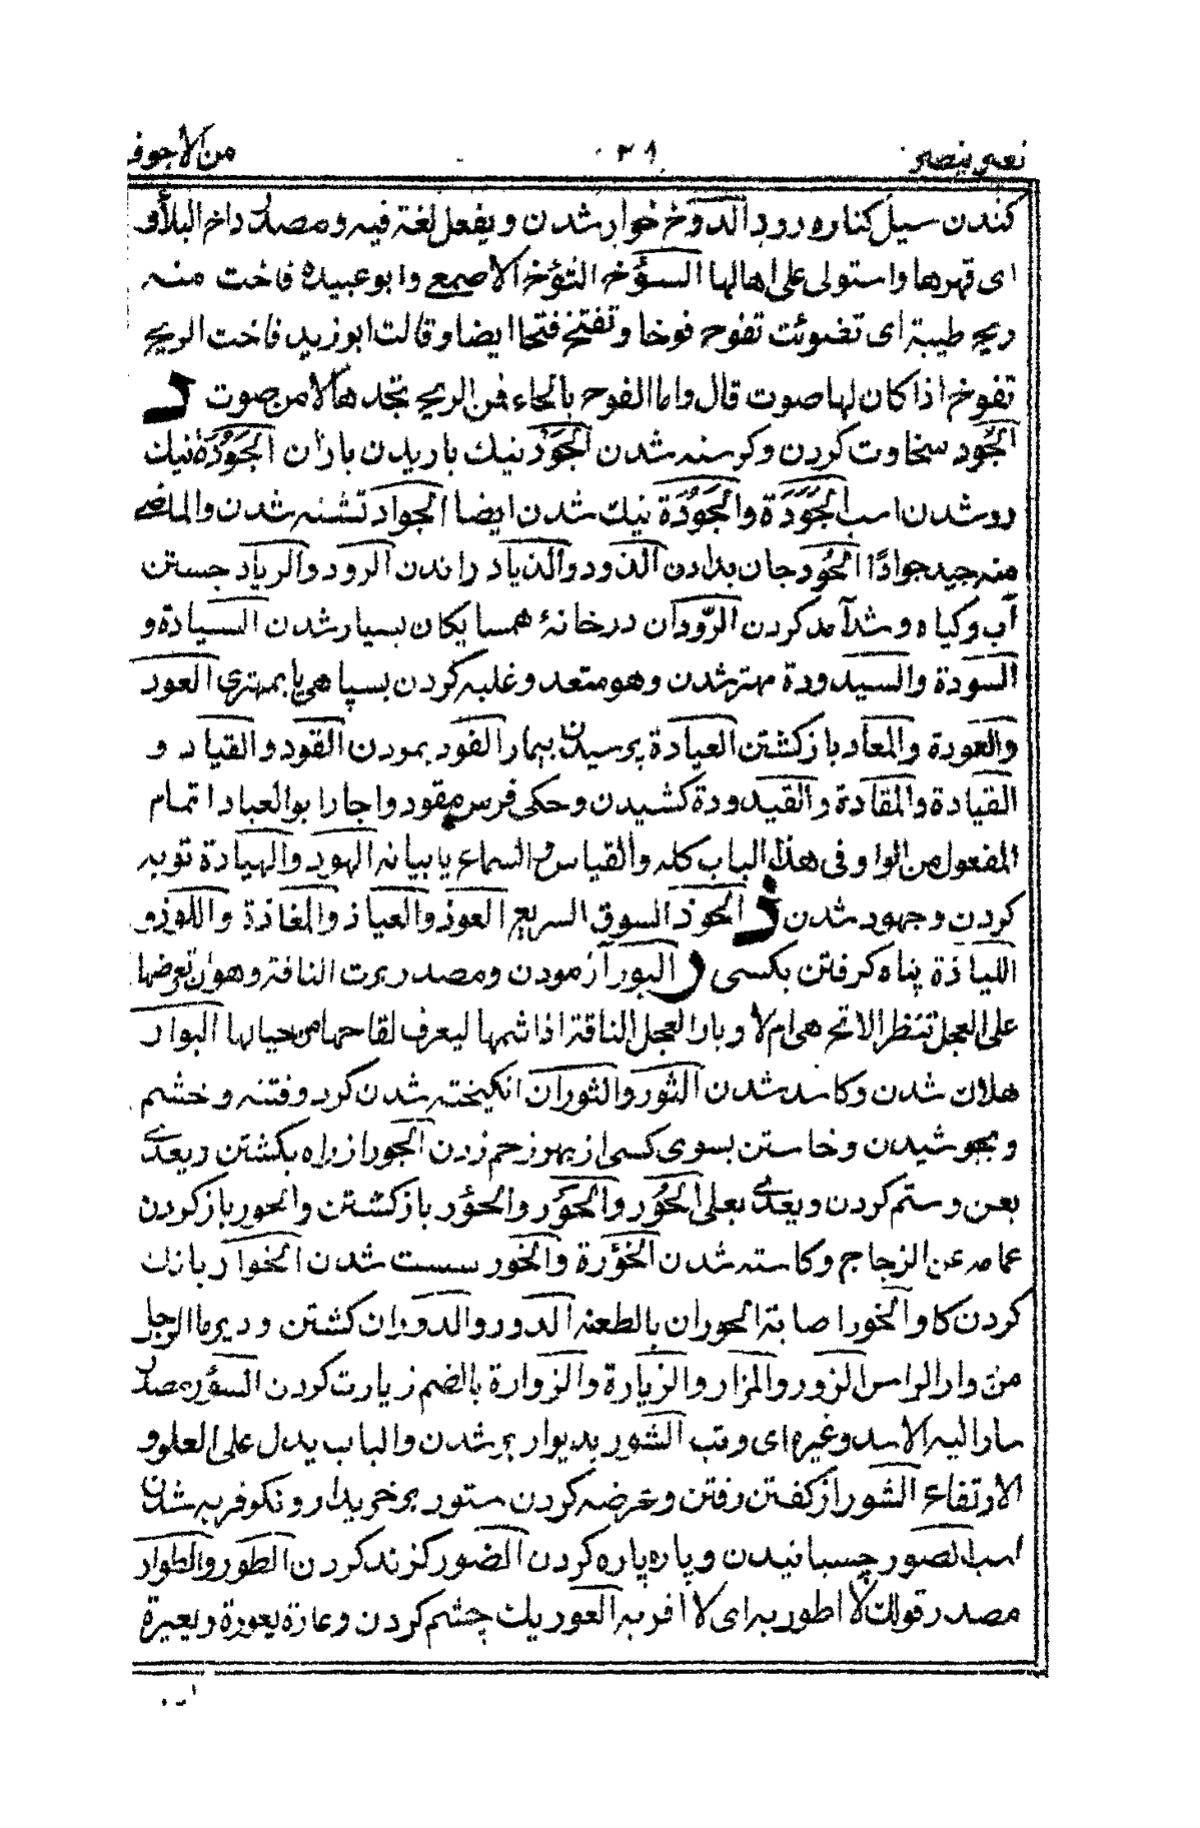 نصر ينصر ٢٩ من الاجوف
كندن سيل كناره رود الدوخ خوار شدن و يفعل لغة فيه و مصدر داخ البلاد
اى قهرها واستولى على اهالها السؤخ الثؤخ الاصمعى وابو عبيدة فاخت منه
ريح طيبة اى تضوئت تفوح فوخا وتفتخ فتحا ايضا وقالت ابو زيد فاخت الريح
تفوخ اذا كان لها صوت قال واما الفوح بالحاء فمن الريح تجدها لا من صوت د
الجُود سخاوت كردن وكرسنه شدن الجَوْد نيك باريدن باران الجَوْدَة نيك
رو شدن اسب الجَوْدَة والجُودَة نيك شدن ايضا الجواد تشنه شدن والماضى
منه جيد جوادًا الجُود جان بدادن الذود والذياد راندن الرود والرياد جستن
آب وكياه و شدآمد كردن الرّودان در خانۀ همسايكان بسيار شدن السيادة و
السودة والسيدودة مهتر شدن وهو متعد وغلبه كردن بسپاهى يا بمهترى العود
والعودة والمعاد باز كشتن العيادة پرسيدن بيمار الفود بمردن القود والقياد و
القيادة والمقادة والقيدودة كشيدن وحكى فرس مقود واجاز ابو العباد اتمام
المفعول من الواو فى هذا الباب كله والقياس والسماع يابيانه الهود والهيادة توبه
كردن وجهود شدن ذ الحوذ السوق السريع العوذ والعياذ والمعاذة واللوذ و
اللياذة پناه كرفتن بكسى ر البور آزمودن ومصدر برت الناقة وهو ان تعرضها
على الفحل تنظر الاقح هى ام لا وبار الفحل الناقة اذا شمها ليعرف لقاحها من حيالها البوار
هلاك شدن وكاسد شدن الثور والثوران انكيخته شدن كرد و فتنه و خشم
و بجوشيدن و خاستن بسوى كسى از بهر زخم زدن الجور از راه بكشتن ويعدى
بعن و ستم كردن ويعدى بعلى الحُور والحَوَر والحؤر باز كشتن والحور باز كردن
عمامه عن الزجاج وكاسته شدن الخؤرة والخور سست شدن الخوار بانك
كردن كاو والخور اصابة الخوران بالطعنه الدور والدوران كشتن وديربالرجل
من دوار الراس الزور والمزار والزيارة والزوارة بالضم زيارت كردن السؤر مصدر
سار اليه الاسد وغيره اى وثب السور بديوار بر شدن والباب يدل على العلو و
الارتفاع الشور از كفتن رفتن و عرضه كردن ستور بر خريدار و نكو فربه شدن
اسب الصور چسبانيدن و پاره پاره كردن الضور كزند كردن الطور والطوار
مصدر قولك لا اطور به اى لا اقربه العور يك چشم كردن وعاره يعوره ويعيره